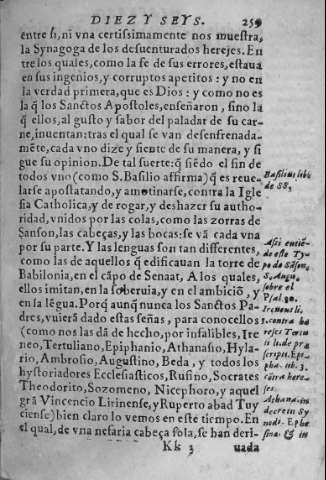 DIEZ Y SEYS. 259
entre si, ni vna certissimamente nos muestra,
la Synagoga de los desuenturados herejes. En
tre los quales, como la fe de sus errores, estaua
en sus ingenios, y corruptos apetitos: y no en
la verdad primera, que es Dios: y como no es
la q̃ los Sanctos Apostoles, enseñaron, sino la
q̃ ellos, al gusto y sabor del paladar de su car-
ne, inuentan: tras el qual se van desenfrenada-
mẽte, cada vno dize y siente de su manera, y si
gue su opinion. De tal suerte: q̃ siẽdo el fin de
todos vno (como S. Basilio affirma) q̃ es reue-
larse apostatando, y amotinarse, contra la Igle
sia Catholica, y de rogar, y deshazer su autho-
ridad, vnidos por las colas, como las zorras de
Sanson, las cabeças, y las bocas: se vã cada vna
por su parte. Y las lenguas son tan differentes,
como las de aquellos q̃ edificauan la torre de
Babilonia, en el cãpo de Senaat, A los quales,
ellos imitan, en la soberuia, y en el ambiciõ, y
en la lẽgua. Porq̃ aunq̃ nunca los Sanctos Pa-
dres, vuierã dado estas señas, para conocellos
(como nos las dã de hecho, por infalibles, Ire
neo, Tertuliano, Epiphanio, Athanasio, Hyla-
rio, Ambrosio, Augustino, Beda, y todos los
hystoriadores Ecclesiasticos, Rufino, Socrates
Theodorito, Sozomeno, Nicephoro, y aquel
grã Vincencio Lirinense, y Ruperto abad Tuy
ciense) bien claro lo vemos en este tiempo. En
el qual, de vna nefaria cabeça sola, se han deri-
Kk 3 uada
Basilius lib.
de SS,
Assi entiẽ-
de este Ty-
po de Sãsõn,
S. Augu.
sobre el
Psal. 80.
Ireneus li.
1. contra he
rejes Tertu
li li. de præ
script. Epi-
pha. lib. 3.
cõtra here-
ses.
Athana. in
decretis Sy
nodi. Ephe
sinæ. & in